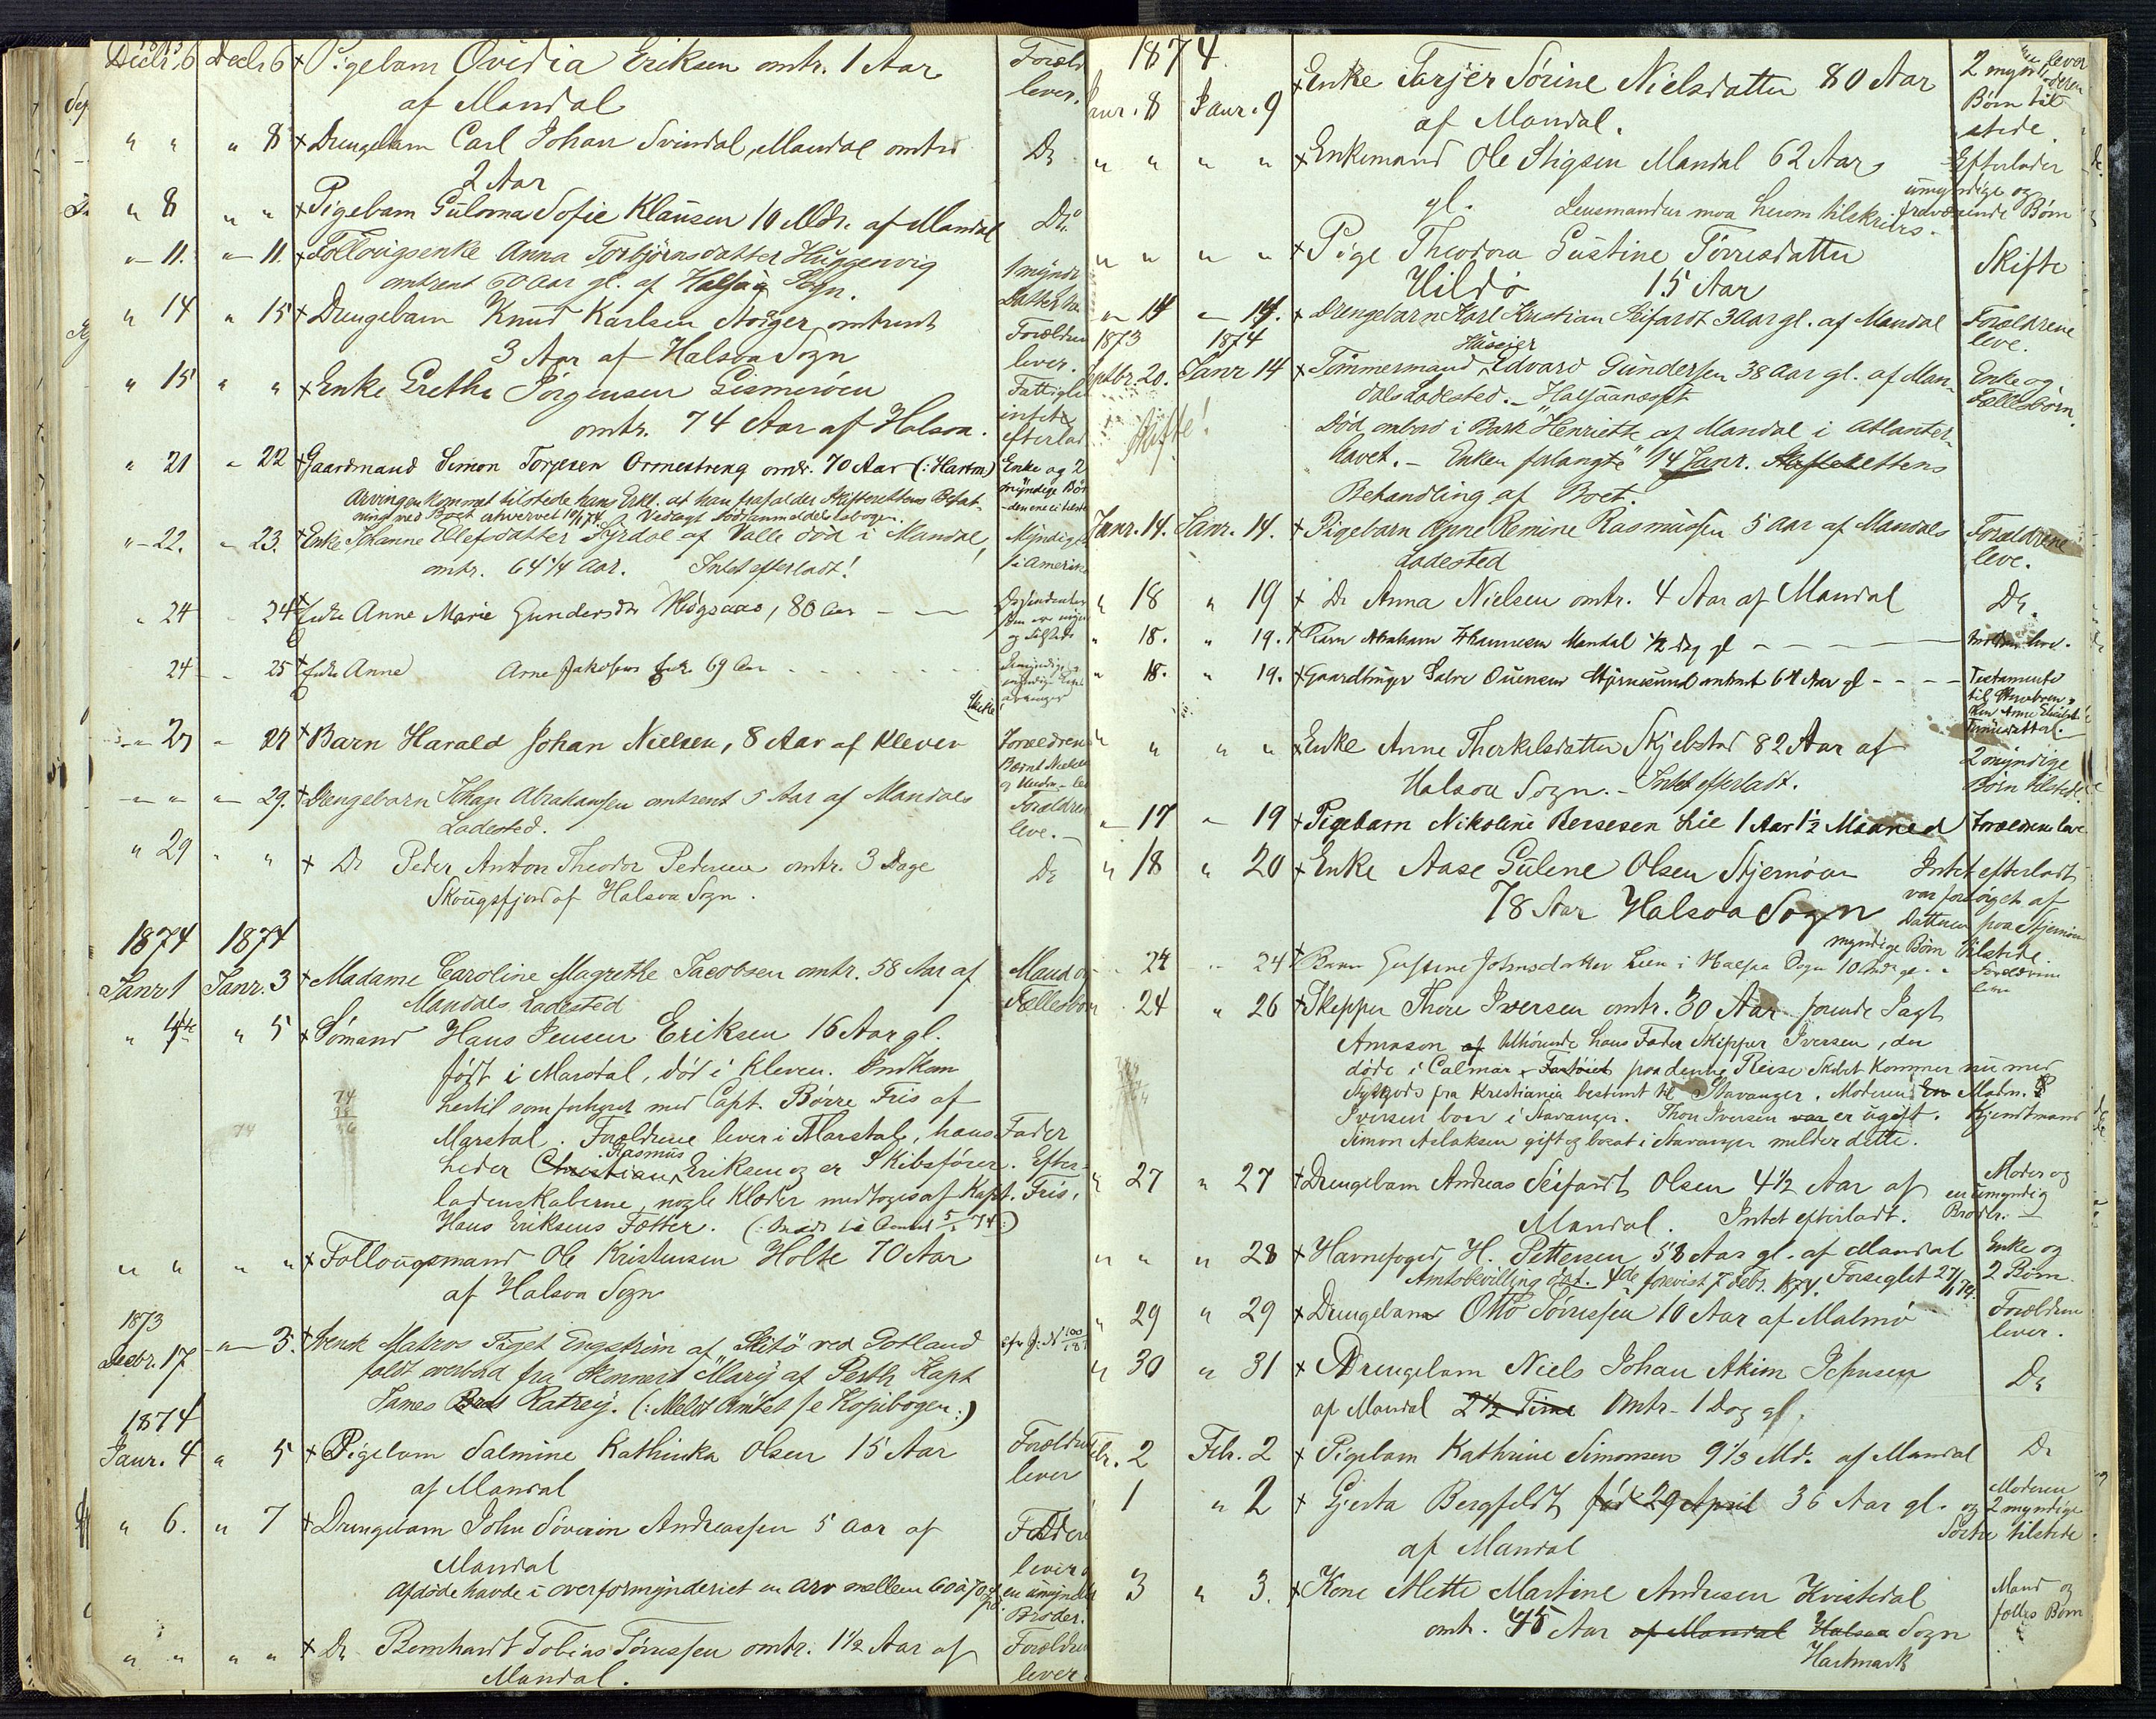 1873
Decbr. 6 Decbr 6 + Pigebarn Ovidia Eriksen omtr. 1 Aar Foræld
af Mandal lever.
" " " 8 + Drengebarn Carl Johan Svindal, Mandal omtr. Do
2 Aar
" 8 " " + Pigebarn Guloma Sofie Klausen 10 Mdr. af Mandal Do
" 11. " 11. + Follougsenke Anna Torbjørnsdatter
omtrent 60 Aar gl. af Halsaa Sogn. 1 myndi
" 14 " 15 + Drengebarn Knud Karlsen omtrent Forældren
3 Aar af Halsaa Sogn lever.
" 15 " " + Enke Grethe Jörgensen Gismeröen Fattigle
omtr. 74 Aar af Halsaa. efterlad
" 21 " 22 + Gaardmand Simon Torjesen Ormestreng omtr. 70 Aar (: Hartm) Enke og 2
myndige Bør
" 22. " 23. + Enke Johanne Ellefsdatter Fyrdal af Valle död i Mandal, Myndige
omtr. 64 1/4 Aar. Intet efterladt! i Amerika
" 24 24 + Enke Anne Marie Gundersdr Høgsaas, 80 Aar
24 " 25 + Enke Anne Arne Jakobsens Enke 69 Aar
" 27 " 27 + Barn Harald Johan Nielsen, 8 Aar af Kleven Forældren
Bernt Nielsen
" " " 29. + Drengebarn Johan Abrahamsen omtrent 5 Aar af Mandals Forældren
Ladested. leve.
" 29 " " + Do Peder Anton Theodor Pedersen omtr. 3 Dage Do
Skougsfjord af Halsaa Sogn.
1874 1874
Janr 1 Janr. 3 + Madame Caroline Magrethe Jacobsen omtr. 58 Aar af Mand og
Mandals Ladested Fællesbørn
" 4de " 5 + Sömand Hans Jensen Eriksen 16 Aar gl.
født i Marstal, död i Kleven. Indkom
hertil som forhyret med Capt. Börre Fris af
Marstal. Forældrene lever i Marstal, hans Fader
Rasmus
heder Christian Eriksen og er Skibsförer. Efter-
ladenskaberne, nogle Klæder medtoges af Kapt. Fris,
Hans Eriksens Fætter.
" " " " + Follougsmand Ole Kristensen Holte 70 Aar
af Halsaa Sogn
1873
Decbr. 17 " 3. + Svensk Matros Engström af ved Gotland
faldt overbord fra "Mary" af Perth Kapt
James Ratrey. (: Meldt Amtet se Kopibogen :)
1874
Janr. 4 " 5 + Pigebarn Salmine Kathinka Olsen 15 Aar Forældre
af Mandal lever
" 6. " 7 + Drengebarn John Söverin Andreassen 5 Aar af
Mandal lever
Afdøde havde i Overformynderiet en Arv mellem 60 à 70 en umyndig
Broder.
" " " " + Do Bernhardt Tobias Tönnessen omtr. 1 1/2 Aar af Forældre
Mandal. lever.
1874.
Janr. 8 Janr. 9 + Enke Tarjer Sörine Nielsdatter 80 Aar 2 mynd
af Mandal. Børn til
stede.
" " " " + Enkemand Ole Stigsen Mandal 62 Aar Efterlader
umyndige og
gl. Lensmanden maa herom tilskrives. fraværende Børn
" " " " + Pige Theodora Gustine Tönnesdatter Skifte
Uildö 15 Aar
" 14 " 14. + Drengebarn Karl Kristian Seifardt 3 Aar gl. af Mandal Forældrene
leve.
1873 1874 Huseier
Septbr. 20. Janr 14 + Tömmermand Edvard Gundersen 38 Aar gl. af Man- Enke og
dals Ladested. - Halsaanæsset Fællesbørn.
Skifte! Död ombord i Bark "Henriette" af Mandal i Atlanter-
havet. - Enken forlangte 14 Janr. Skifterettens
Behandling af Boet.
Janr. 14. Janr. 14. + Pigebarn Agne Remine Rasmussen 5 Aar af Mandals Forældrene
Ladested leve.
" 18 " 19 + Do Anna Nielsen omtr. 4 Aar af Mandal Do.
" 18. " 19. + Barn Abraham Mandal 1/2 Dag gl
" 18. " 19. + Gaardbruger Salve Ouensen omtrent 64 Aar gl Testamente
" " " " + Enke Anne Therkelsdatter Skjebstad 82 Aar af 2 myndige
Halsaa Sogn. - Intet efterladt. Börn tilstede.
" 17 " 19 + Pigebarn Nikoline Bersesen Lie 1 Aar 1 1/2 Maaned Forældrene leve
" 18 " 20 + Enke Aase Gulene Olsen Stjernöen Intet efterladt
var forsørget af
78 Aar Halsaa Sogn Datteren paa Stjernöen
myndige Børn tilstede.
" 24 " 24 + Barn Gustine Johnsdatter Lien i Halsaa Sogn Forældrene
leve
24 " 26 + Skipper Thore Iversen omtr. 30 Aar förende Jagt
Amason af tilhörende hans Fader Skipper Iversen, der
döde i Calmar Fartöiet paa denne Reise Skibet kommer nu med
Stykgods fra Kristiania bestemt til Stavanger. Moderen En Madm.
Iversen boer i Stavanger. Thore Iversen var er ugift. Kjendtmand
Simon Aslaksen gift og bosat i Stavanger melder dette.
" 27 " 27 + Drengebarn Andreas Seifardt Olsen 4 1/2 Aar af Moder og
en umyndig
Mandal. Intet efterladt. Broder.
" " " 28 + Havnefoged H. Pettersen 58 Aar gl. af Mandal Enke og
Amtsbevilling dat. 4de forevist 7 Febr. 1874. Forseglet 27/1 74. 2 Børn.
" 29 " 29 + Drengebarn Otto Tönnessen 10 Aar af Malmö Forældrene
lever.
" 30 " 31 + Drengebarn Niels Johan Akim Jensen Do
af Mandal 2 1/2 Time Omtr. 1 Dag gl.
Febr. 2 Febr. 2 + Pigebarn Kathrine Simonsen 9 1/3 Md. af Mandal Do
1 " 2 + Gjerta Bergfeldt född 29 April 36 Aar gl. Moderen
og 2 myndige
af Mandal Søstre tilstede
3 " 3. + Kone Mette Martine Andresen Kvisedal Mand og
omtr. 45 Aar af Mandal Halsaa Sogn fælles Børn
Hartmark